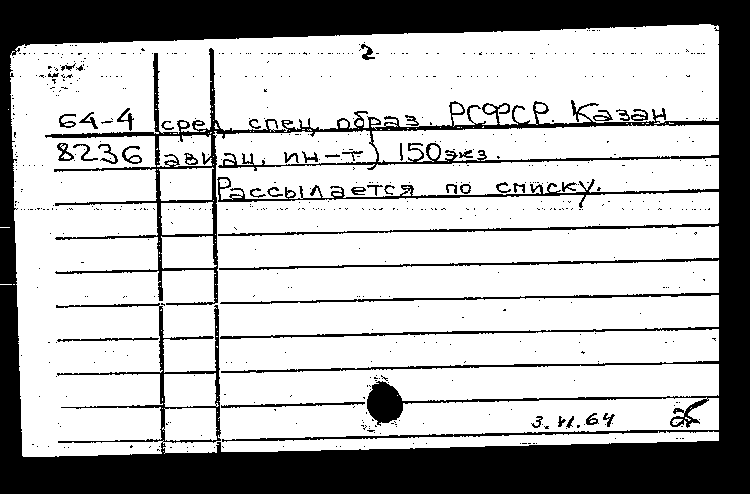 2
64-4 сред. спец. образ. РСФСР. Казан
8236 авиац. ин-т) 150 экз.
Рассылается по списку.
3.VI.64